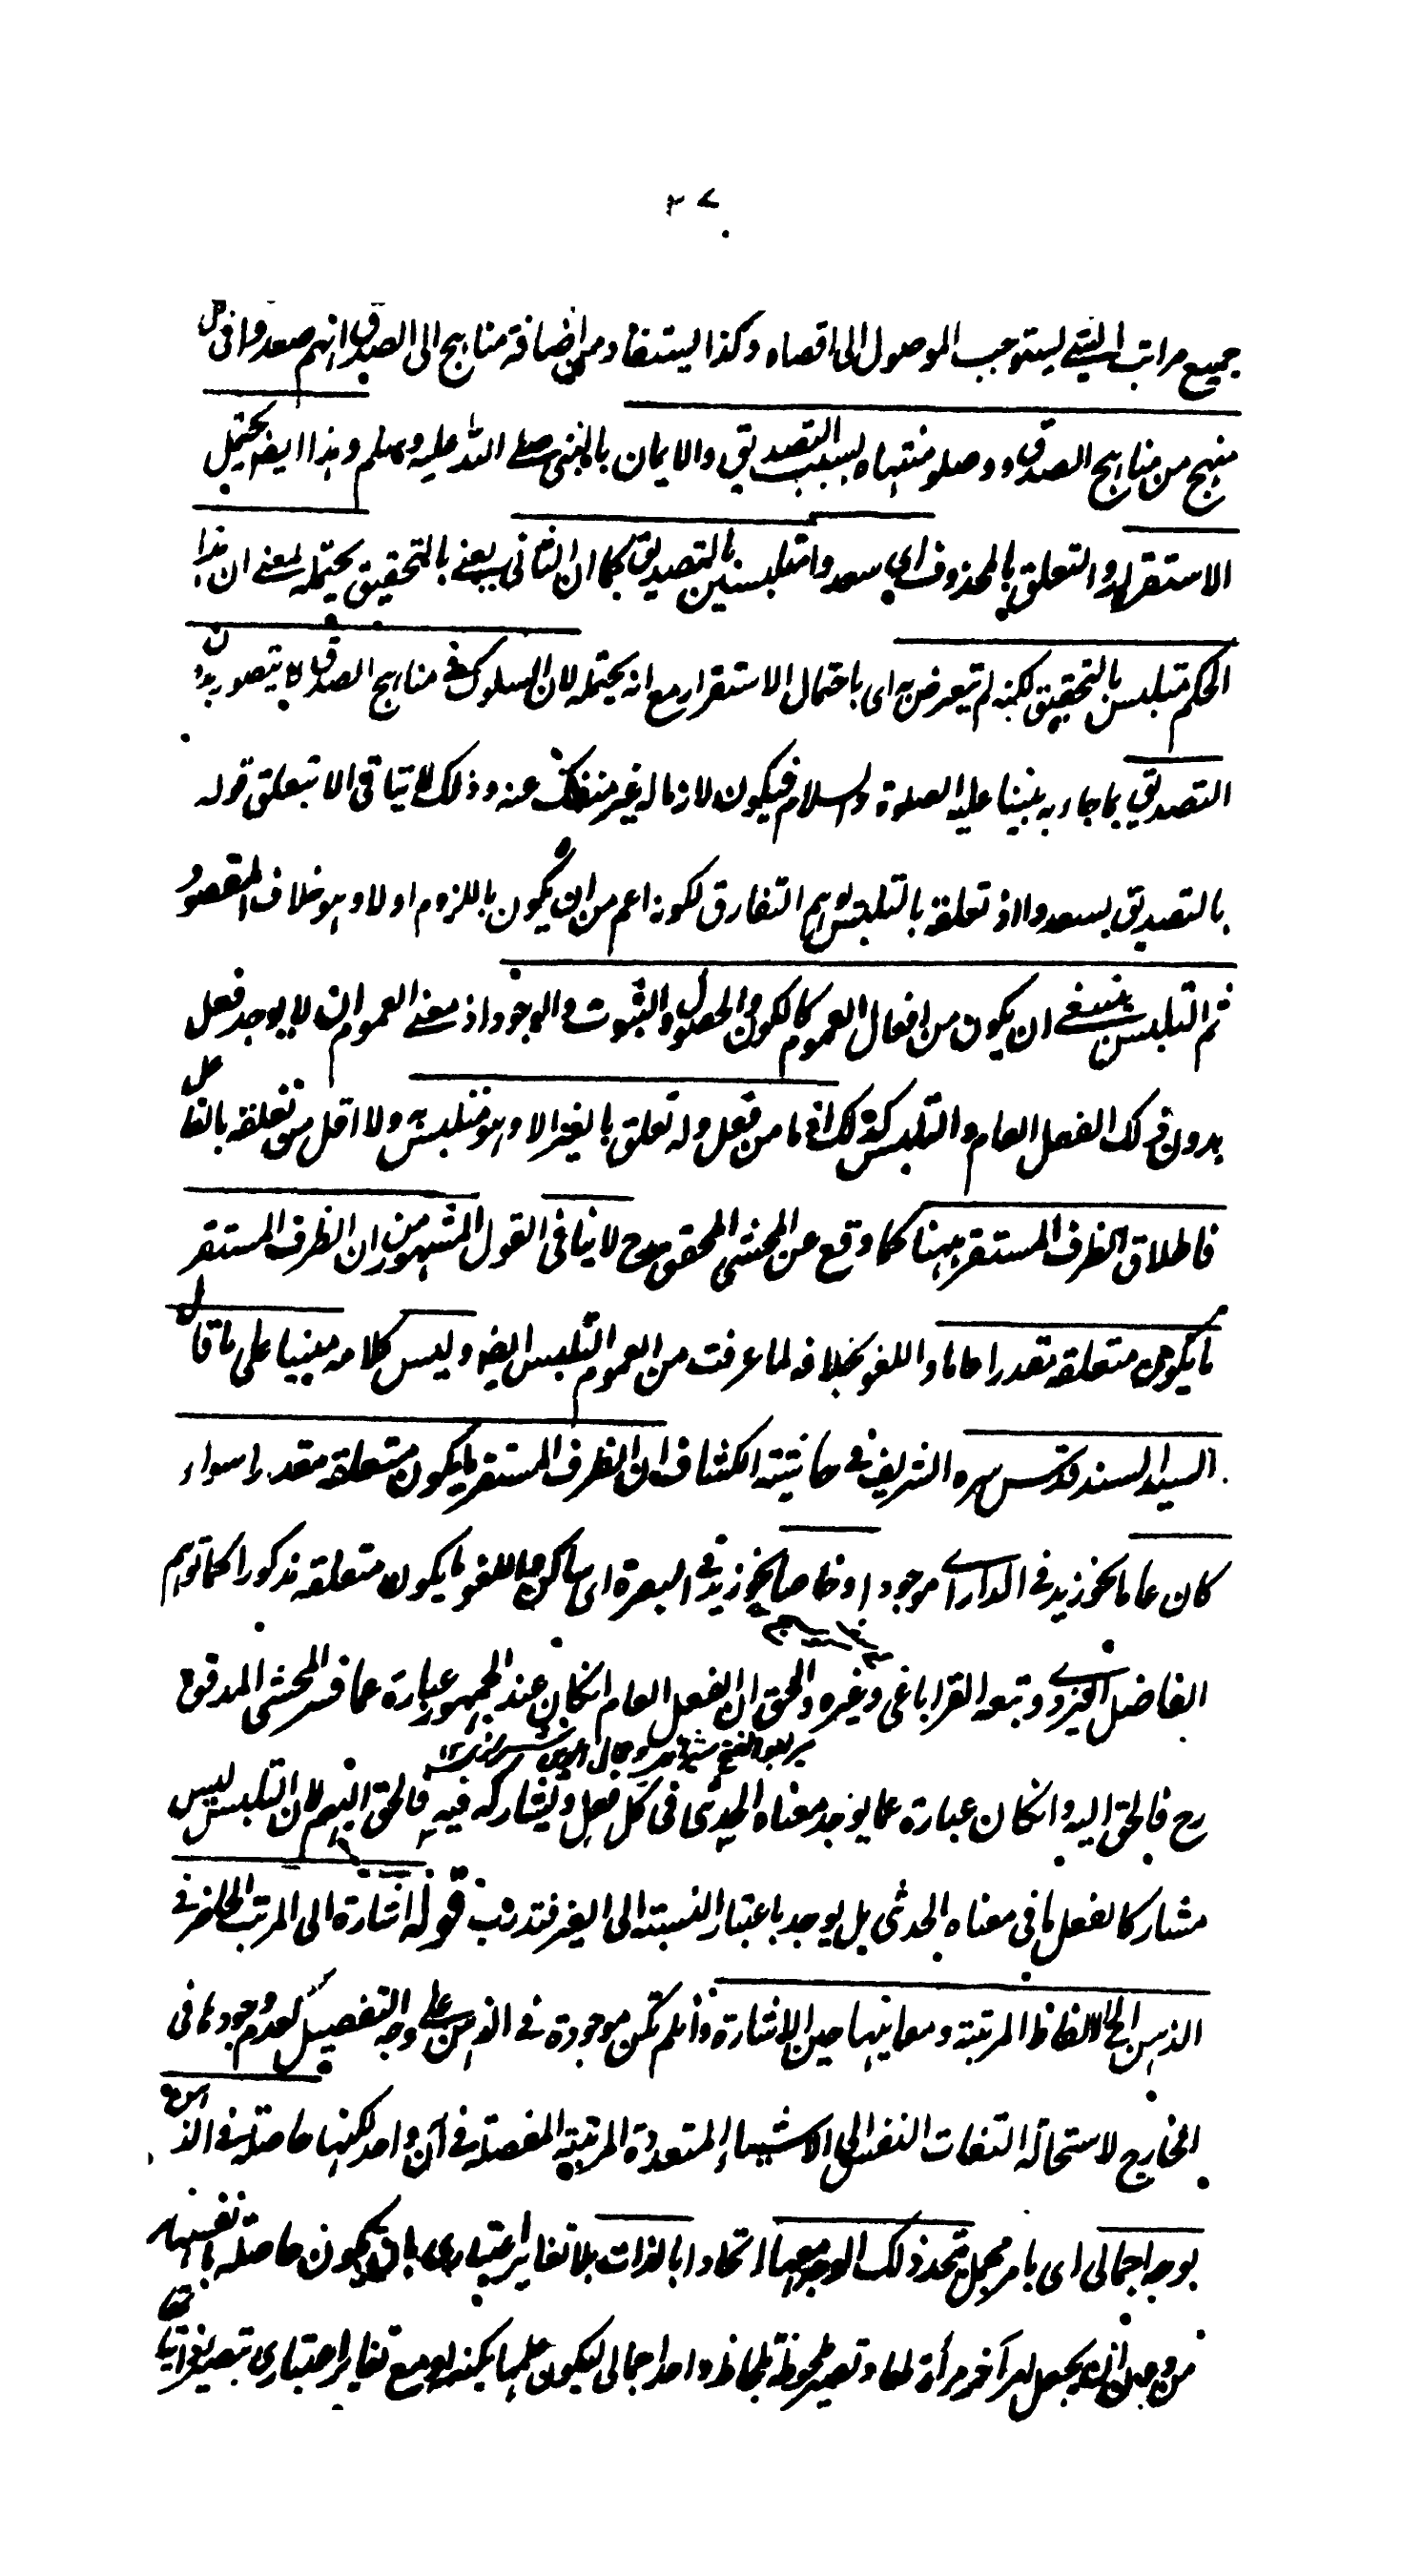 ٢٧
جميع مراتب الشئ يستوجب الوصول الى اقصاه وكذا يستفاد من اضافة مناهج الى الصدق انهم صعدوا فى كل
منهج من مناهج الصدق ووصلو منتهاه بسبب التصديق والايمان بالنبى صلے الله عليه وسلم وهذا ايض يحتمل
الاستقرار والتعلق بالمحذوف اي سعدوا متلبسين بالتصديق كما ان الثانى يعنے بالتحقيق يحتمله لمعنے ان هذا
الحكم متلبس بالتحقيق لكنه لم يتعرض به اى باحتمال الاستقرار مع انه يحتمله لان السلوك فے مناهج الصدق لا يتصور بدون
التصديق بما جاء به نبينا عليه الصلوة والسلام فيكون لازما له غير منفك عنه وذلك لا يتاتى الا بتعلق قوله
بالتصديق بسعدوا اذ تعلقه بالتلبس يوهم التفارق لكونه اعم من ان يكون باللزوم اولا وهو خلاف المقصود
ثم التلبس ينبغے ان يكون من افعال العموم كالكون والحصول والثبوت والوجود اذ معنے العموم ان لا يوجد فعل
بدون ذلك الفعل العام والتلبس كذلك اذ ما من فعل وله تعلق بالغير الا وهو متلبس به ولا اقل من تعلقه بالفاعل
فاطلاق الظرف المستقر ههنا كما وقع عن المحشى المحقق رح لا ينافى القول المشهور من ان الظرف المستقر
ما يكون متعلقه مقدرا عاما واللغو بخلافه لما عرفت من العموم التلبس ايض وليس كلامه مبنيا على ما قال
السيد السند قدس سره الشريف فے حاشية الكشاف ان الظرف المستقر ما يكون متعلقه مقدرا سواء
كان عاما نحو زيد فى الدار اے موجود او خاصا نحو زيد فے البصرة اى ساكن واللغو ما يكون متعلقه مذكورا كما توهم
الفاضل اليزدے وتبعه القراباغى وغيره والحق ان الفعل العام انكان عند الجمهور عبارة عما فسر المحشى المدقق
رح فالحق اليه وانكان عبارة عما يوجد معناه الحدثى فى كل فعل ويشاركه فيه فالحق اليهم لان التلبس ليس
مشاركا لفعل ما فى معناه الحدثى بل يوجد باعتبار النسبة الى الغير فتدبر قوله اشارة الى المرتب الحاضر فے
الذهن الخ الالفاظ المرتبة ومعانيها حين الاشارة وان لم تكن موجودة فے الذهن على وجه التفصيل لعدم وجودها فى
الخارج لاستحالة التفات النفس الى الاشياء المتعددة المرتبة المفصلة فے آن واحد لكنها حاصلة فے الذهن
بوجه اجمالى اى بامر مجمل متحد ذلك الوجه معها اتحادا بالذات بلا تغاير اعتبارى بان يكون حاصلة بانفسها
من دون ان يجعل امر آخر مرأة لها وتصير ملحوظة بلحاظ واحد اجمالى ليكون علمها بكنهه او مع تغاير اعتبارى